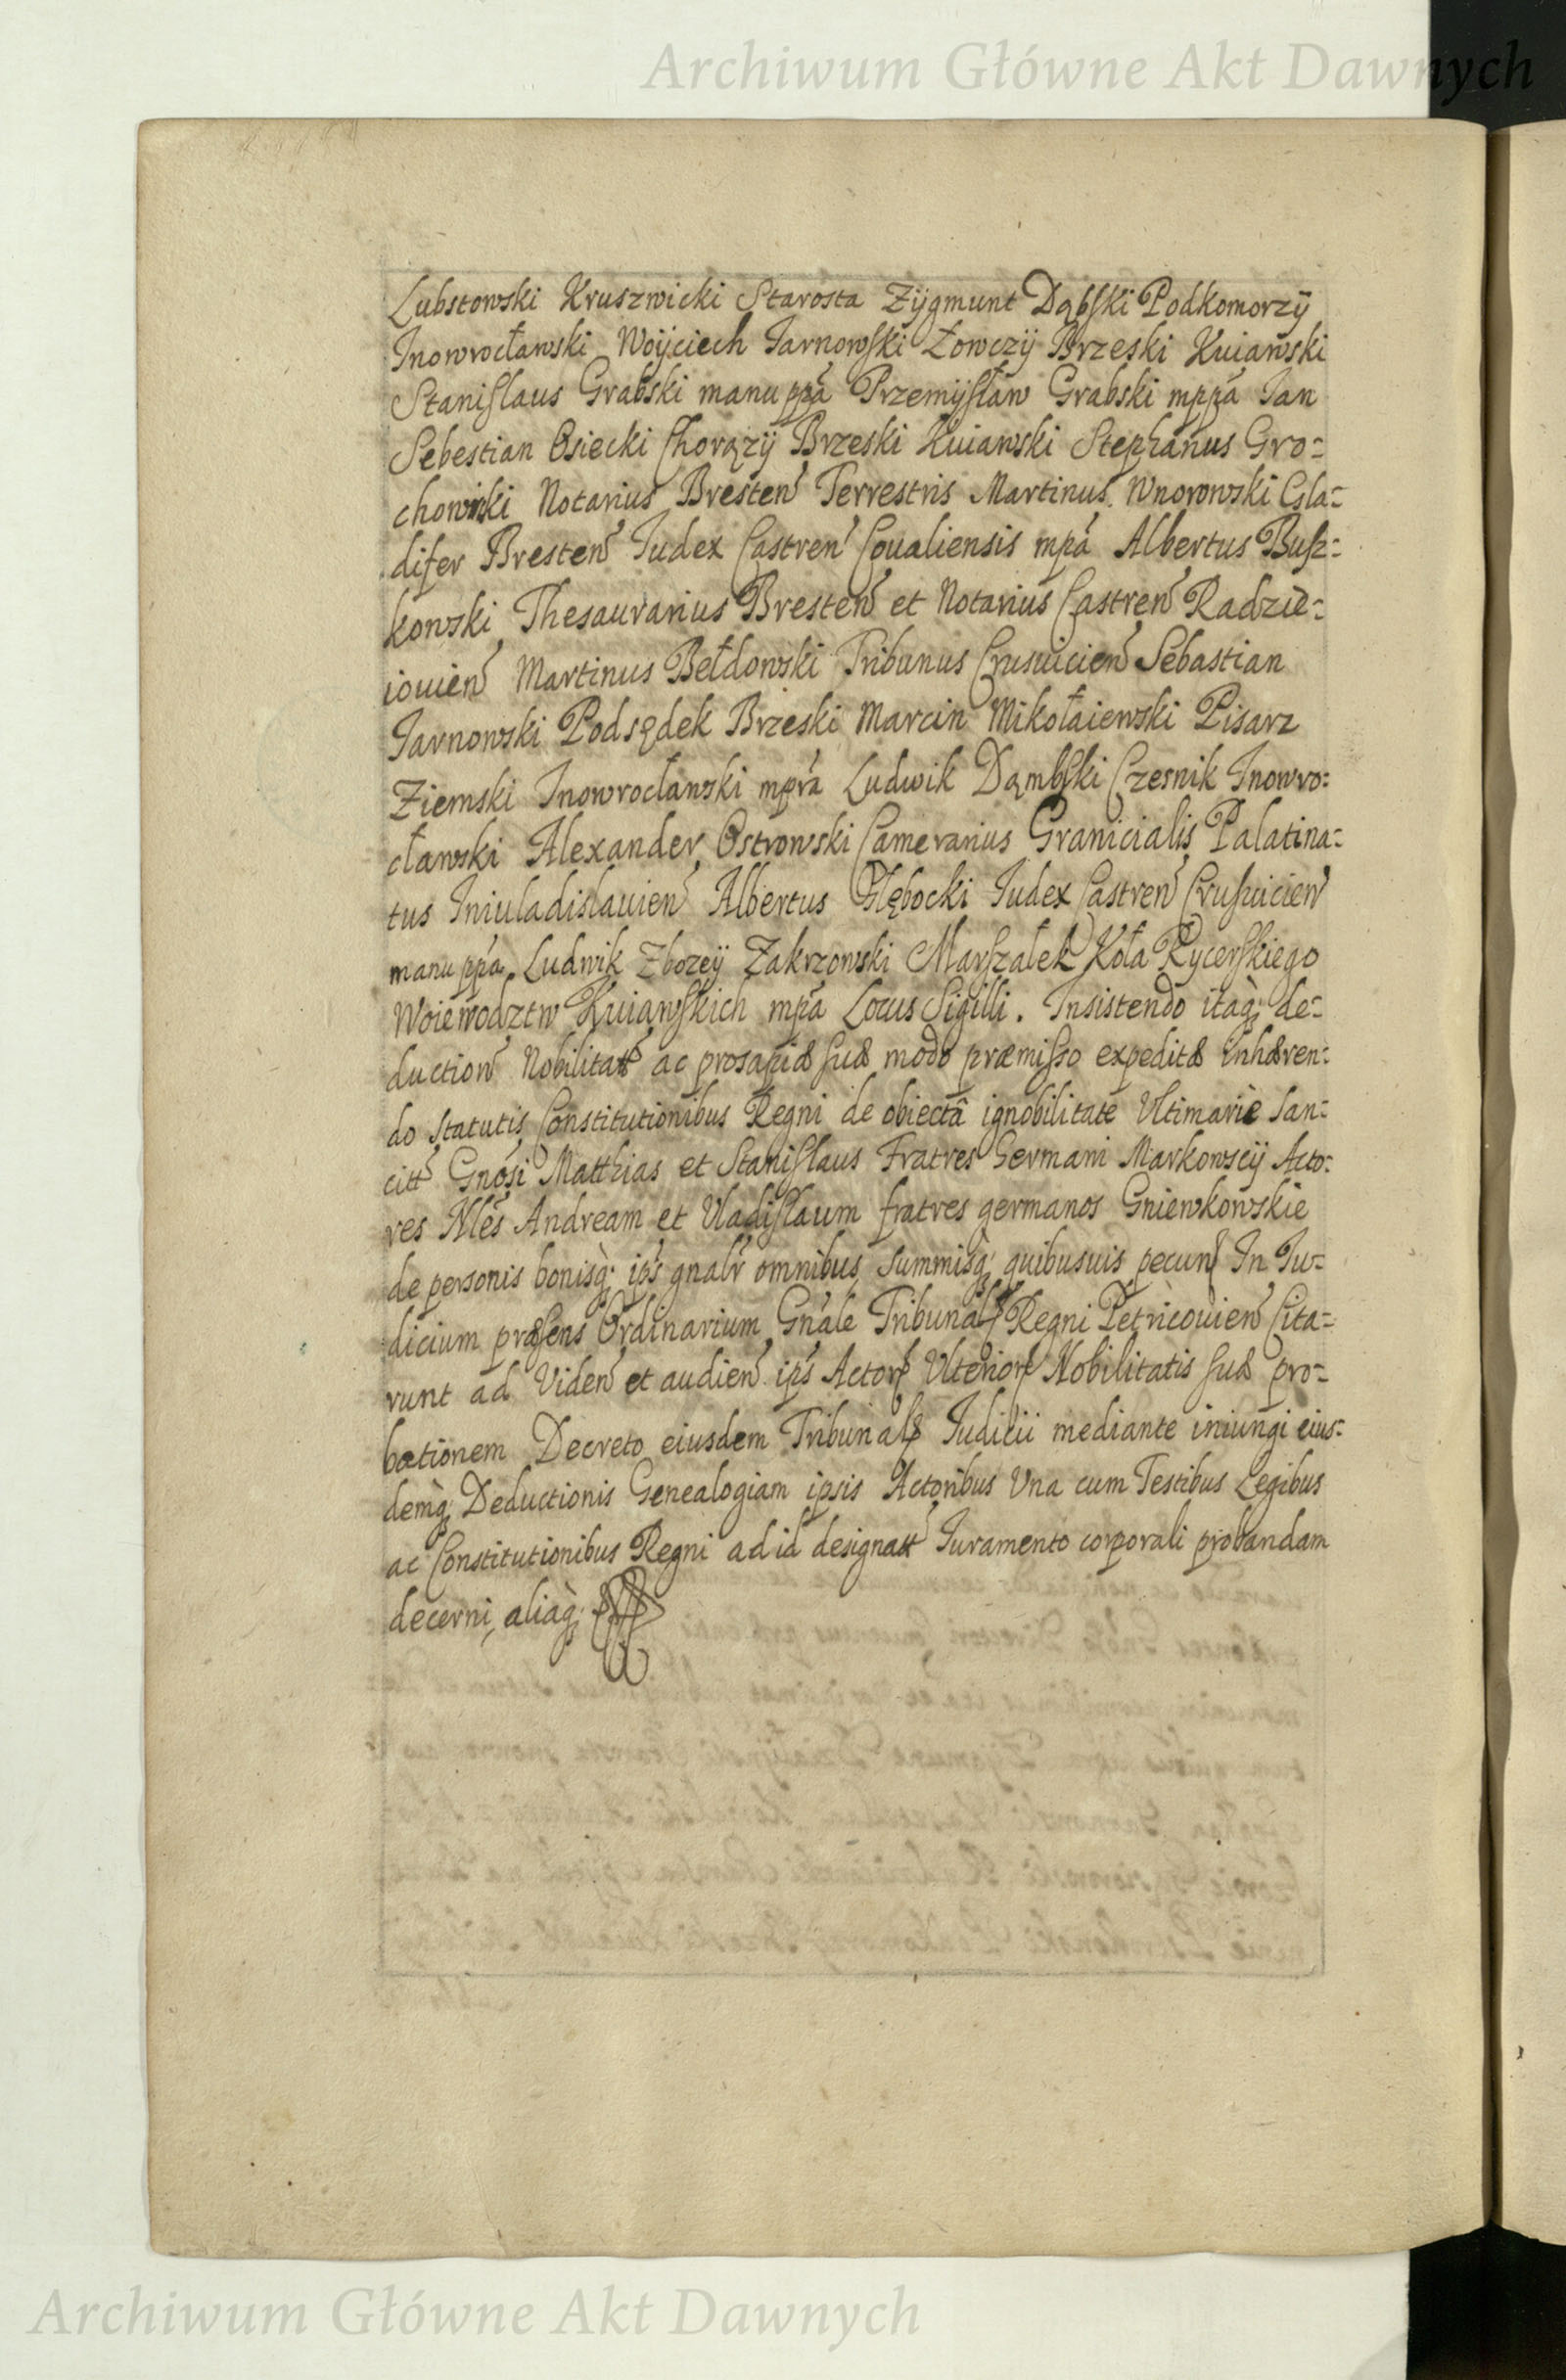 Archiwum Główne Akt Dawnych
Lubstowski Kruszwicki Starosta Zÿgmunt Dąbſki Podkomorzÿ
Inowrocławski Woÿciech Jarnowſki Łowczÿ Brzeski Kuiawski
Staniſlaus Grabski manu ppa Przemÿſław Grabski mppa Jan
Sebestian Osiecki Chorązÿ Brzeski Kuiawski Stephanus Gro=
chowiski Notarius Bresten Terrestris Martinus Wnorowski Gla=
difer Bresten Judex Castren Coualiensis mpa Albertus Buſz=
kowski Thesaurarius Bresten et Notarius Castren Radzie=
iouien Martinus Bełdowski Tribunus Crusuicien Sebastian
Jarnowski Podsędek Brzeski Marcin Mikołaiewski Pisarz
Ziemski Inowrocławski mpra Ludwik Dąmbſki Czesnik Inowro=
cławski Alexander Ostrowski Camerarius Granicialis Palatina=
tus Iniuladislauien Albertus Głębocki Judex Castren Cruſuicien
manu ppa Ludwik Zbozeÿ Zakrzowski Marſzałek Koła Rycerſkiego
Woiewodztw Kuiawſkich mpa Locus Sigilli. Insistendo itaq; de=
duction Nobilitatt ac prosapiæ ſuæ modo præmiſso expeditæ inhæren=
do Statutis Constitutionibus Regni de obiectâ ignobilitate Vltimariè San=
citt Gnosi Matthias et Staniſlaus Fratres Germani Markowscÿ Acto=
res Nles Andream et Vladiſlaum fratres germanos Gniewkowskie
de personis bonisq; ips gnalr omnibus summisq; quibusuis pecun In Ju=
dicium præſens Ordinarium Gnale Tribunal Regni Petricouien Cita=
runt ad Viden et audien ips Actor Vlterior Nobilitatis ſuæ pro=
bationem Decreto eiusdem Tribunal Judicii mediante iniungi eius=
demq; Deductionis Genealogiam ipsis Actoribus Vna cum Testibus Legibus
ac Constitutionibus Regni ad id designatt Juramento corporali probandam
decerni, aliaq;
Archiwum Główne Akt Dawnych